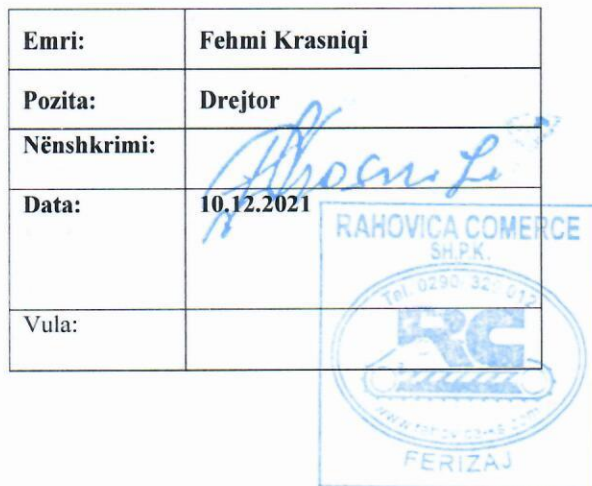 Emri: Fehmi Krasniqi
Pozita: Drejtor
Nënshkrimi:
Data: 10.12.2021
RAHOVICA COMERCE
SH.P.K.
Tel. 0290 32
RC
Vula:
FERIZAJ